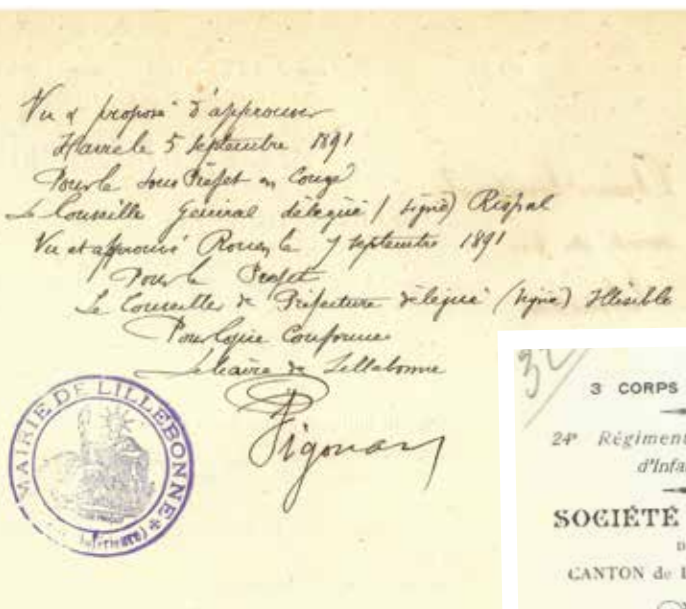 Vu & proposé d'approuver
Havre le 5 septembre 1891
Pour le Sous Préfet en Congé
Le Conseille Général délégué / signé) Respal
Vu et approuvé Rouen le 7 septembre 1891
Pour le Préfet
Le Conseiller de Préfecture délégué (signé) Illisible
Pour Copie Conforme
Le Maire de Lillebonne
Pigoran
MAIRIE DE LILLEBONNE
Inférieure)
32
3 CORPS
24e Régiment
d'Infa
SOCIÉTÉ
D
CANTON de L